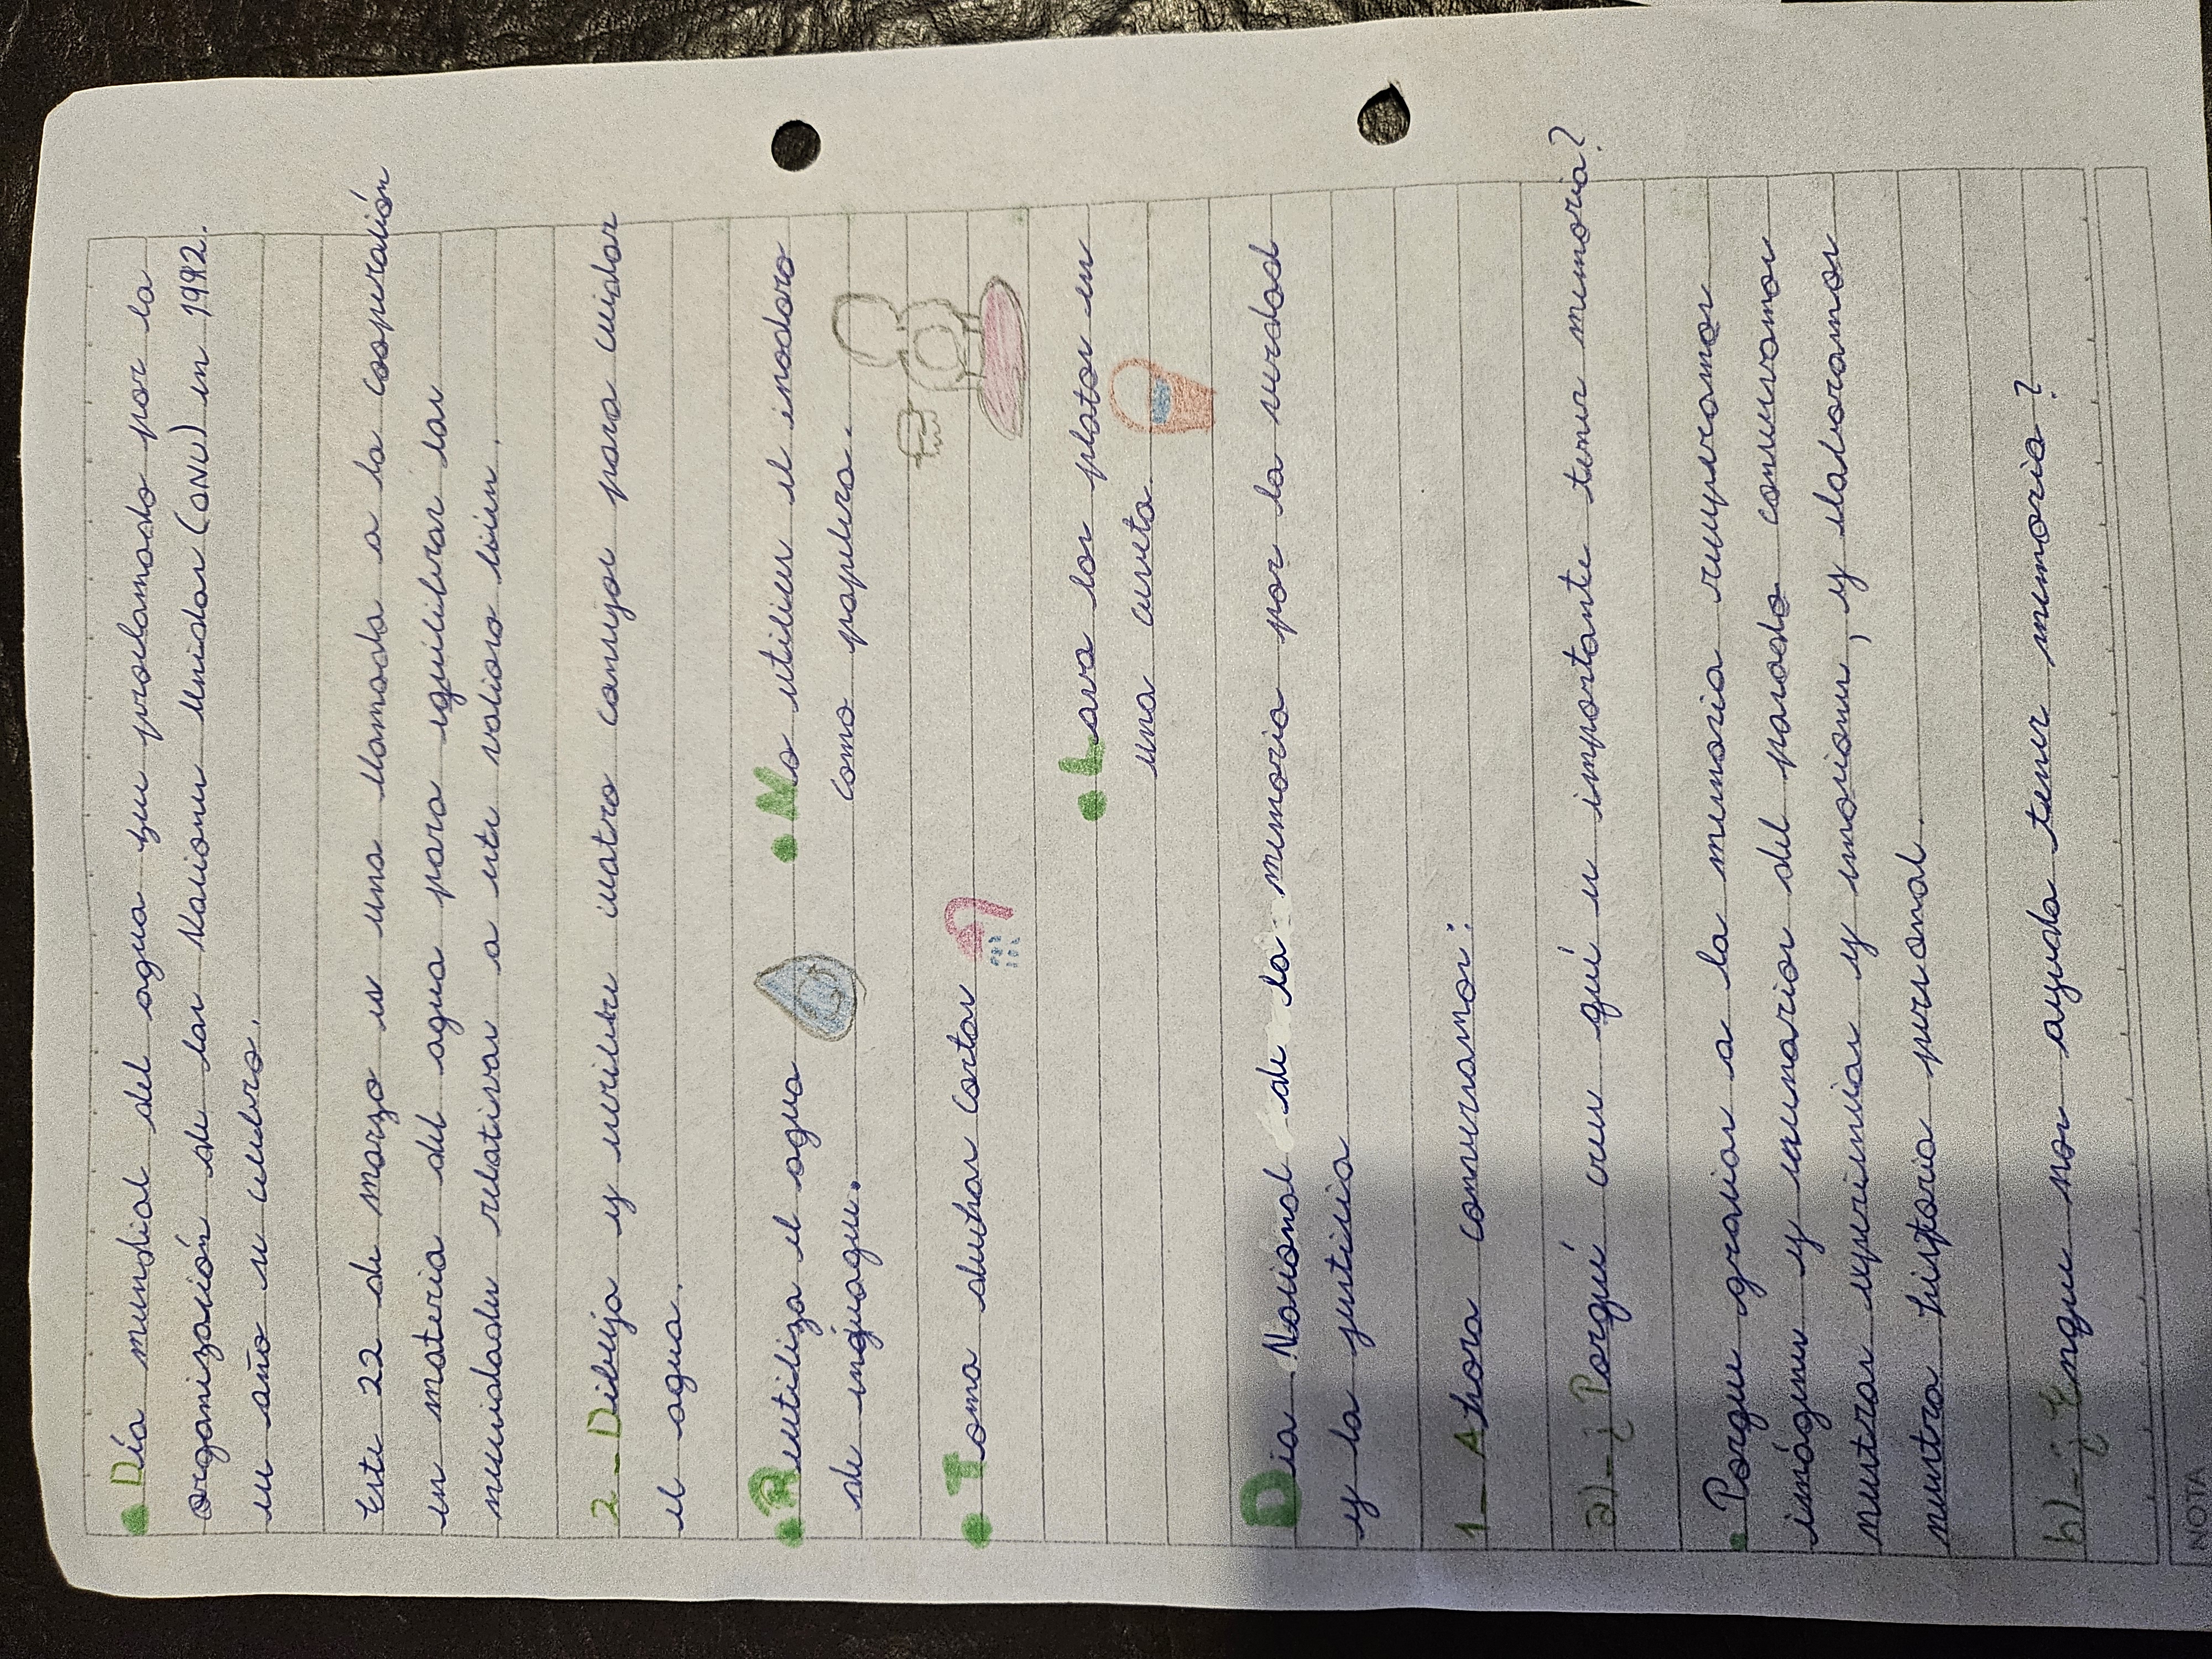 • Día mundial del agua fue proclamado por la
organización de las Naciones Unidas (ONU) en 1992.
su año se celebra.
Este 22 de marzo es una llamada a la cooperación
en materia del agua para equilibrar las
necesidades relativas a este valioso bien.
2_ Dibuja y escribe cuatro consejos para cuidar
el agua.
• Reutiliza el agua
de enjuague.
• No utilices el inodoro
como papelera.
• Toma duchas cortas
• Lava los platos en
una cuveta
Dia Nacional de la memoria por la verdad
y la justicia
1_ Ahora conversamos:
a)-¿Porqué crees qué es importante tener memoria?
• Porque gracias a la memoria recuperamos
imágenes y escenarios del pasado conservamos
nuestras experiencias y emociones, y elaboramos
nuestra historia personal.
b)-¿Enque nos ayuda tener memoria?
NOTA